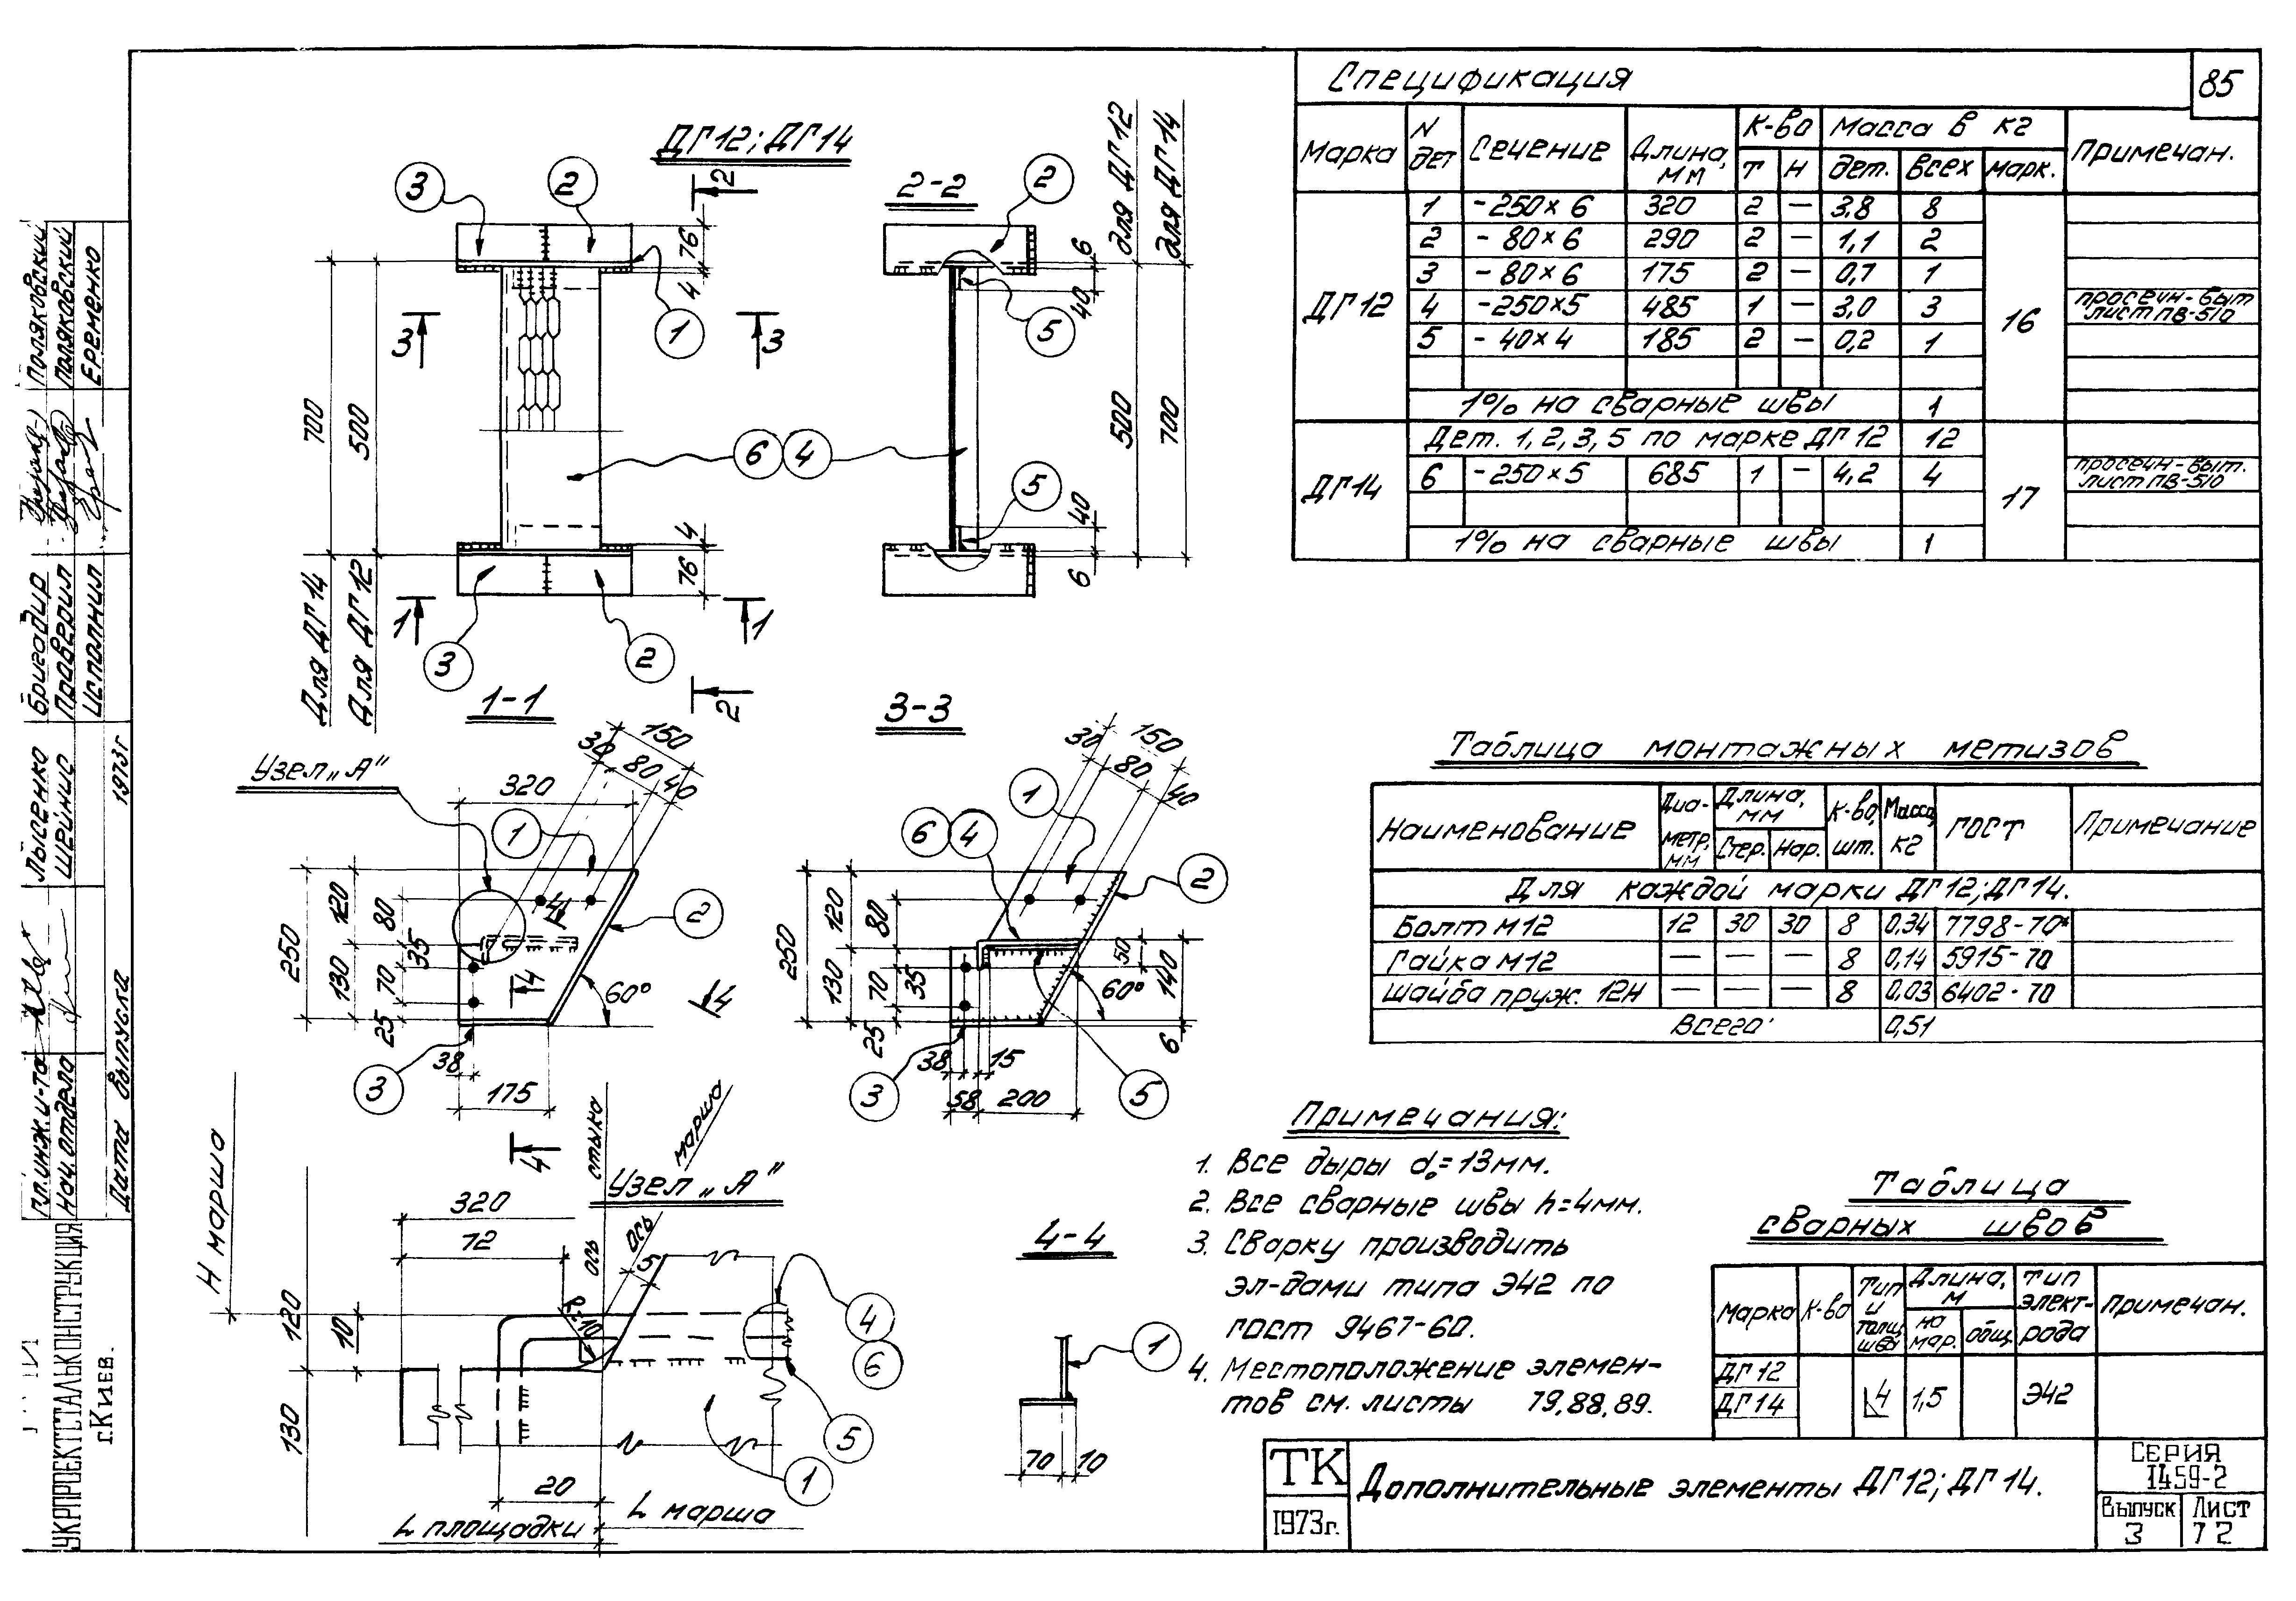 Спецификация
85
Марка
N дет
Сечение
Длина, мм
К-во
Т
Н
Масса в кг
дет.
всех
марк.
Примечан.
ДГ12
1 -250×6 320 2 — 3,8 8
2 -80×6 290 2 — 1,1 2
3 -80×6 175 2 — 0,7 1
4 -250×5 485 1 — 3,0 3 просечн-выт лист ПВ-510
5 -40×4 185 2 — 0,2 1
16
1% на сварные швы 1
ДГ14
Дет. 1, 2, 3, 5 по марке ДГ12 12
6 -250×5 685 1 - 4,2 4 просечн-выт. лист ПВ-510
17
1% на сварные швы 1
ДГ12; ДГ14
3
2
2
76
4
1
3
3
700
500
6
4
4
76
1
1
3
2
2
Для ДГ14
Для ДГ12
2-2
2
6
40
5
5
40
6
500
700
для ДГ12
для ДГ14
1-1
Узел „А"
30
150
80
40
320
1
2
3
250
120
130
80
35
70
25
38
175
60°
4
4
4
4
3-3
30
150
80
40
1
6
4
2
250
120
130
80
70
35
25
50
140
60°
6
38
15
58
200
3
5
Узел „А"
Н марша
320
72
120
10
130
R=10
5
ось стыка
ось марша
4
6
5
1
20
L площадки
L марша
4-4
1
70
10
Таблица монтажных метизов
Наименование
Диаметр, мм
Длина, мм
Стер.
Нар.
К-во, шт.
Масса, кг
ГОСТ
Примечание
Для каждой марки ДГ12; ДГ14.
Болт М12 12 30 30 8 0,34 7798-70*
Гайка М12 — — — 8 0,14 5915-70
Шайба пруж. 12Н — — — 8 0,03 6402-70
Всего: 0,51
Примечания:
1. Все дыры d₀=13мм.
2. Все сварные швы h=4мм.
3. Сварку производить
эл-дами типа Э42 по
ГОСТ 9467-60.
4. Местоположение элемен-
тов см. листы 79, 88, 89.
Таблица
сварных швов
Марка
К-во
Тип и толщ. шва
Длина, м
на мар.
общ.
Тип элект-рода
Примечан.
ДГ12
ДГ14
4
1,5
Э42
ТК
1973г.
Дополнительные элементы ДГ12; ДГ14.
Серия
1459-2
Выпуск
3
Лист
72
Поляковский
Поляковский
Еременко
Бригадир
Проверил
Исполнил
Лысенко
Шейнис
1973г
Гл. инж. и-та
Нач. отдела
Дата выпуска
УКРПРОЕКТСТАЛЬКОНСТРУКЦИЯ
г. Киев.